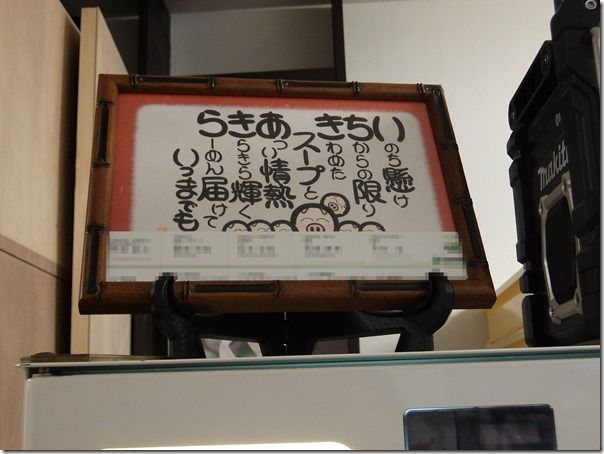 いのち懸け
ちからの限り
きわめた
スープと
あつい情熱
きらきら輝く
らーめん届けて
いつまでも
makita